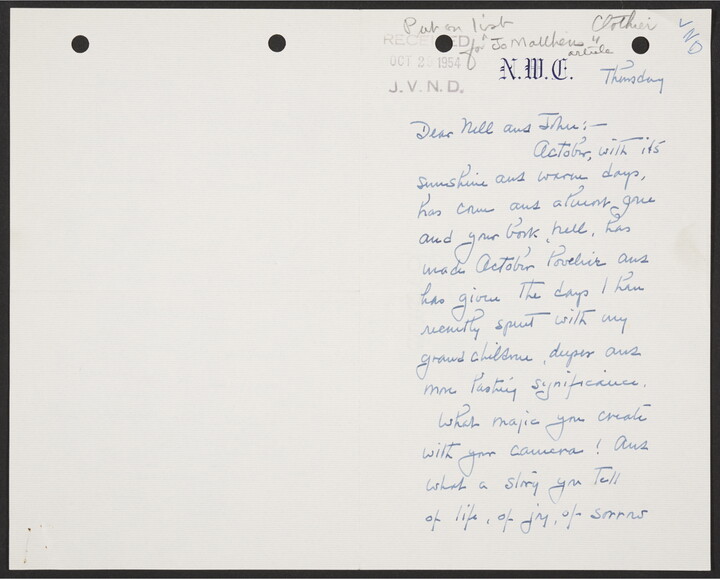 Put on list Clothier VND
for Jo Matthews' article
RECEIVED
OCT 2 1954
J. V. N. D.
N.W.C.
Thursday
Dear Nell and John:—
October, with its
sunshine and warm days,
has come and almost gone
and your book, Nell, has
made October lovelier and
has given the days I have
recently spent with my
grandchildren, deeper and
more lasting significance.
What magic you create
with your camera! And
what a story you tell
of life, of joy, of sorrow